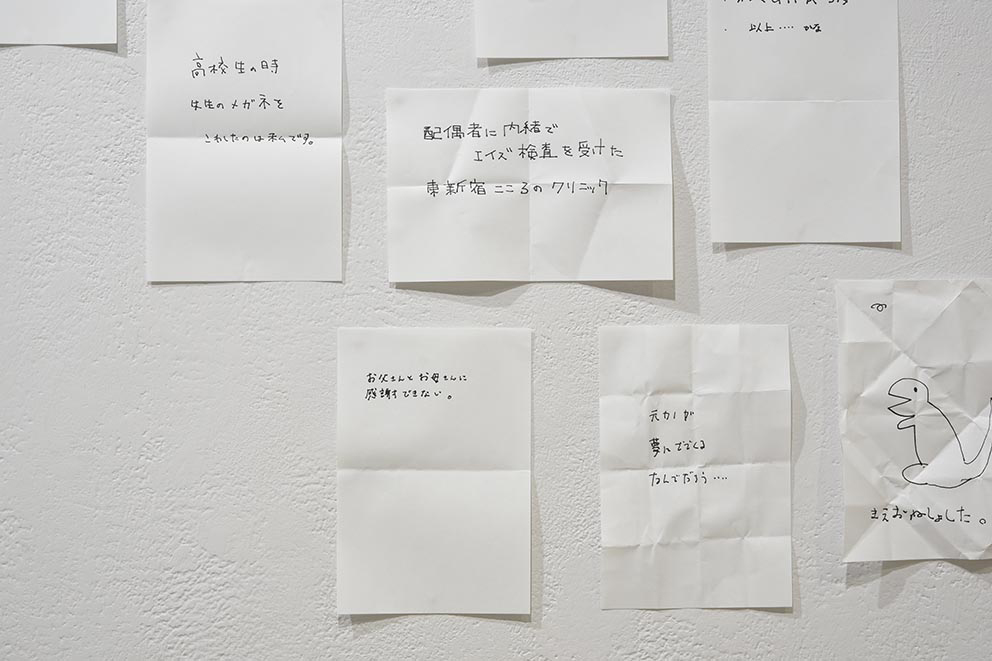 高校生の時
先生のメガネを
こわしたのは私です。
配偶者に内緒で
エイズ検査を受けた
東新宿こころのクリニック
・以上‥‥かな
お父さんとお母さんに
感謝できない。
元カノが
夢にでてくる
なんでだろう‥‥
おねしょした。